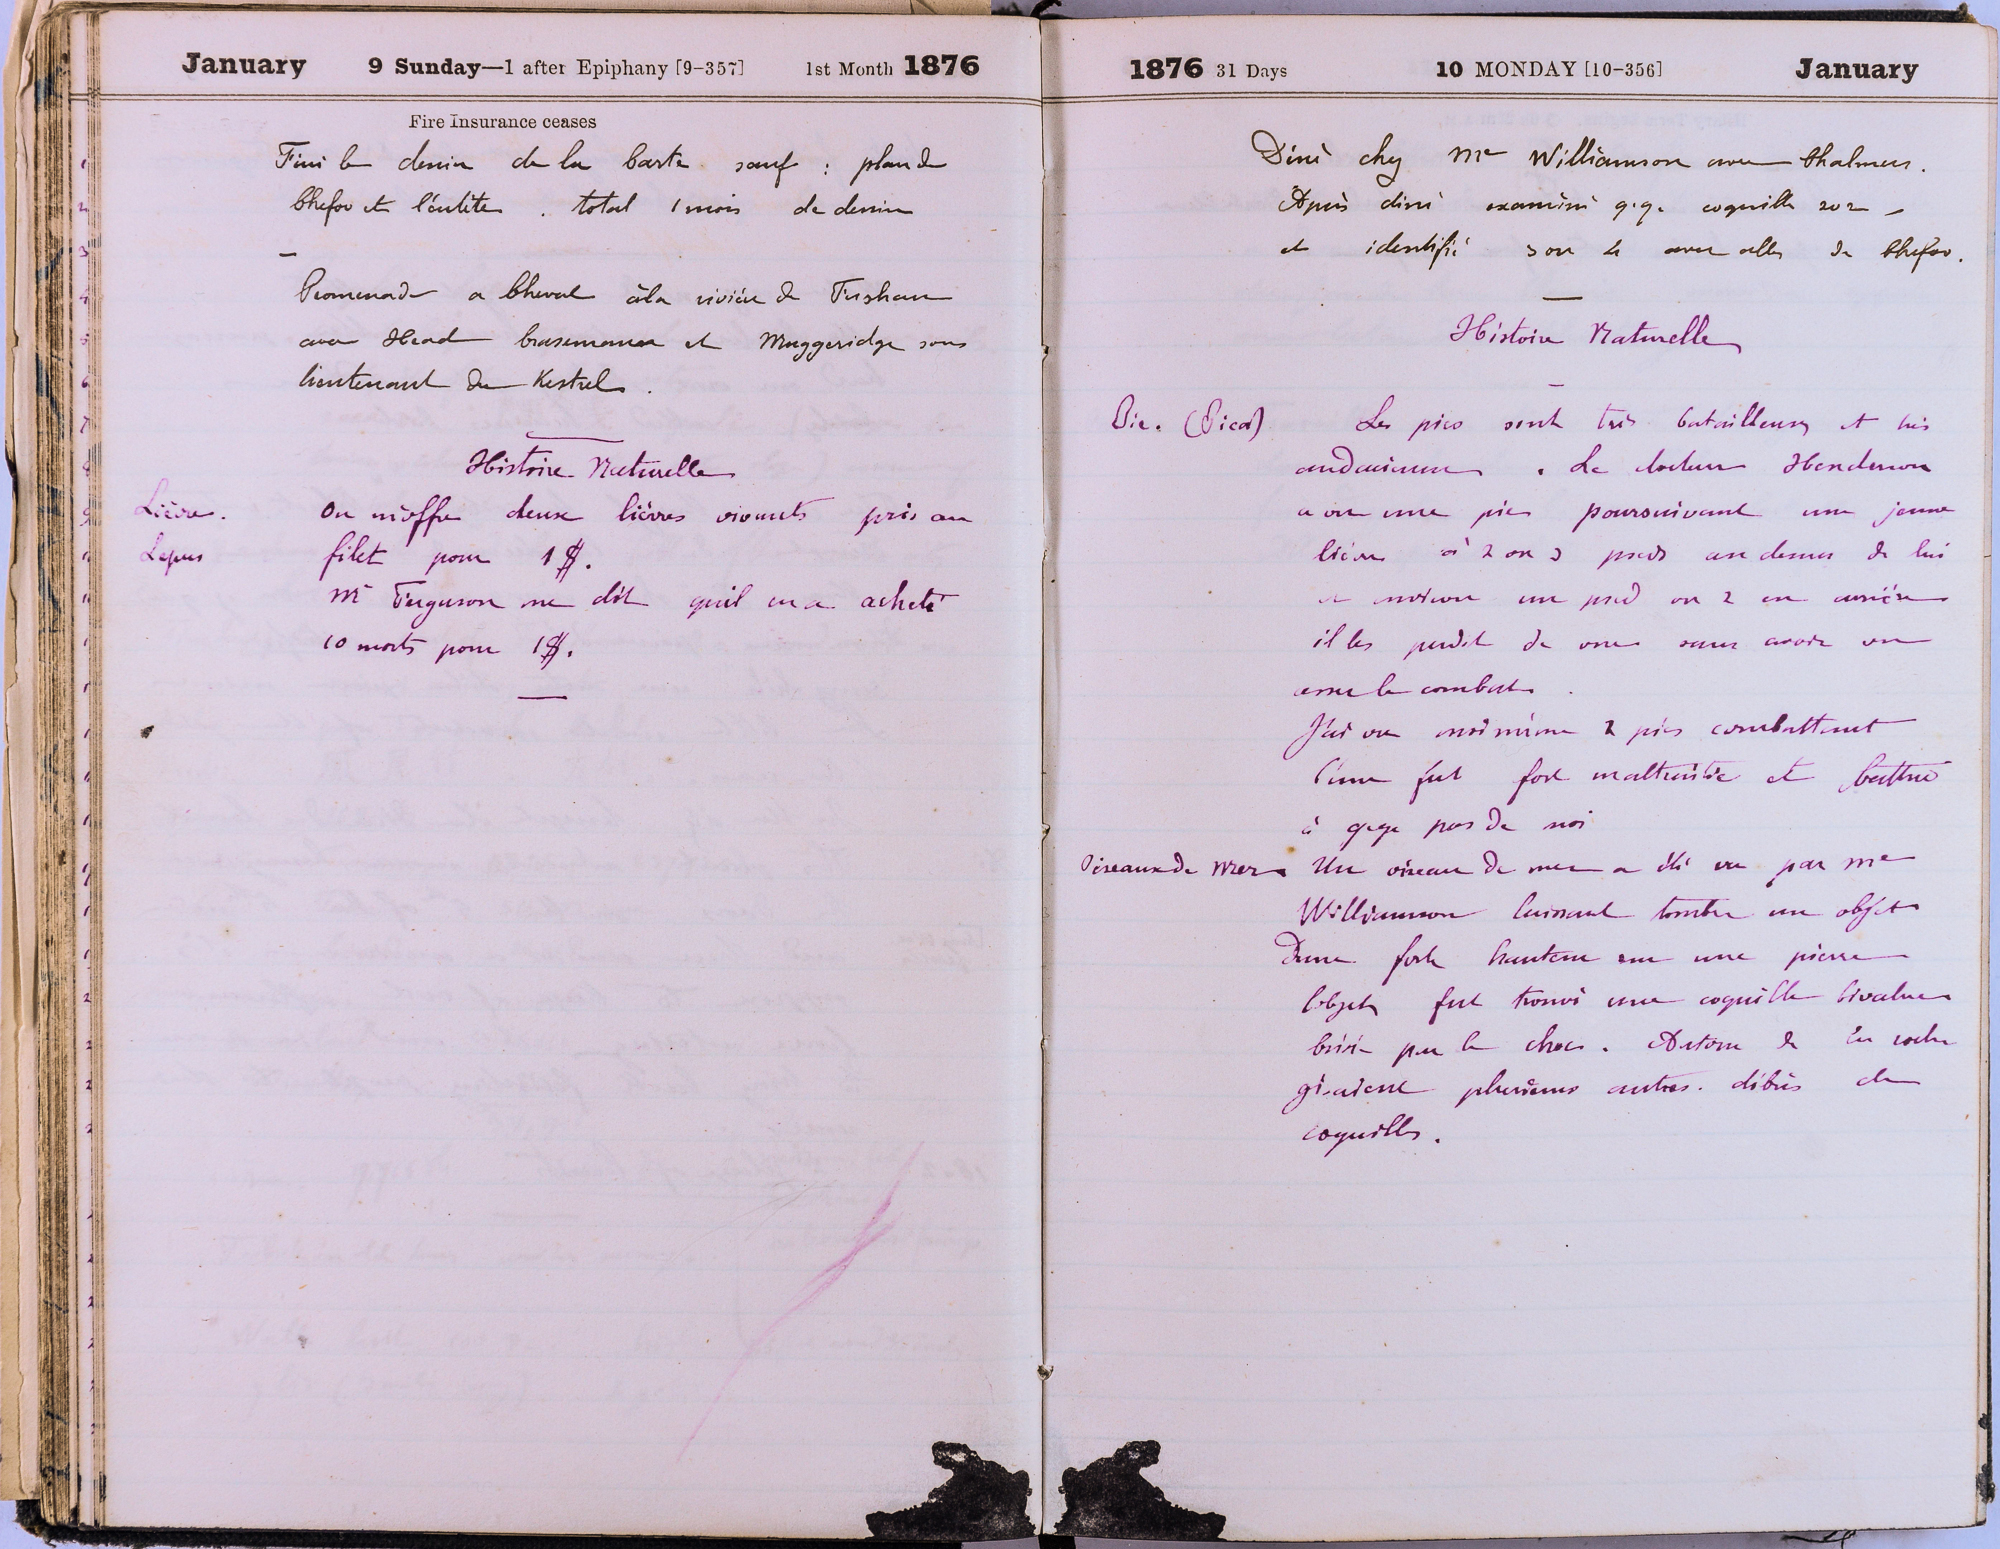 January 9 Sunday—1 after Epiphany [9-357] 1st Month 1876
Fire Insurance ceases
Fini le dessin de la Carte sauf : plan de
Chefoo et l'entête . total 1 mois de dessin
—
Promenade a Cheval à la rivière de
avec Head et Muggeridge sous
lieutenant du Kestrel .
Histoire Naturelle
Lièvre. On m'offre deux lièvres vivants pris au
Lepus filet pour 1 $.
Mr Ferguson me dit qu'il en a acheté
10 morts pour 1 $.
1876 31 Days 10 MONDAY [10-356] January
Diné chez Mr Williamson avec Chalmers.
Après diné examiné q.q. coquille
et identifié 3 ou 4 avec celles de Chefoo.
—
Histoire Naturelle
—
Pie. (Pica) Les pies sont très batailleuses et très
audacieuses . Le docteur Henderson
a vu une pie poursuivant un jeune
lièvre à 2 ou 3 pieds au dessus de lui
et environ un pied ou 2 en arrière
il les perdit de vue sans avoir vu
cesser le combat .
J'ai vu moi même 2 pies combattant
l'une fut fort maltraitée et battue
à qq pas de moi
Oiseaux de Mer Un oiseau de mer a été vu par Mr
Williamson laissant tomber un objet
D'une forte hauteur sur une pierre
l'objet fut trouvé une coquille bivalve
brisée par le choc . Autour de la roche
gisaient plusieurs autres débris de
coquilles .